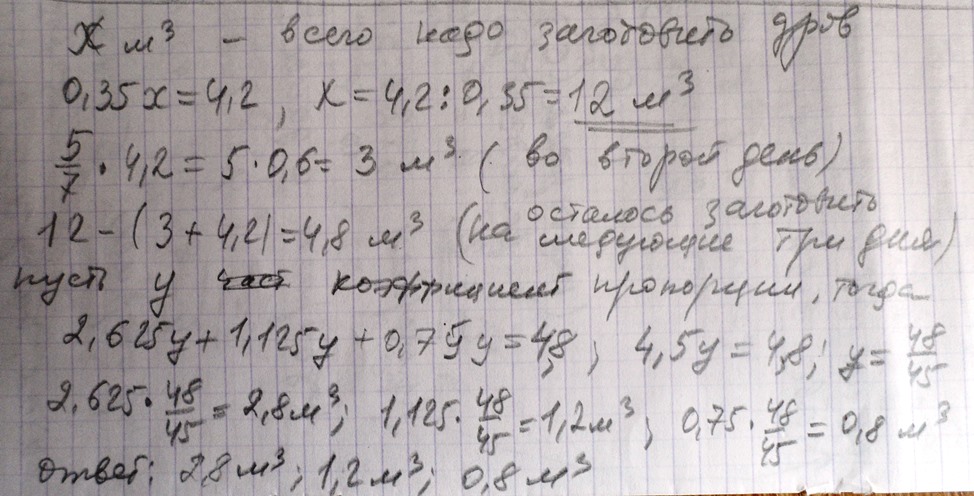 X м³ – всего надо заготовить дров
0,35x = 4,2, x = 4,2 : 0,35 = 12 м³
5/7 · 4,2 = 5 · 0,6 = 3 м³ (во второй день)
12 – (3 + 4,2) = 4,8 м³ (осталось заготовить на следующие три дня)
пусть y част коэффициент пропорции, тогда
2,625y + 1,125y + 0,75y = 4,8; 4,5y = 4,8; y = 48/45
2,625 · 48/45 = 2,8 м³; 1,125 · 48/45 = 1,2 м³; 0,75 · 48/45 = 0,8 м³
ответ: 2,8 м³; 1,2 м³; 0,8 м³